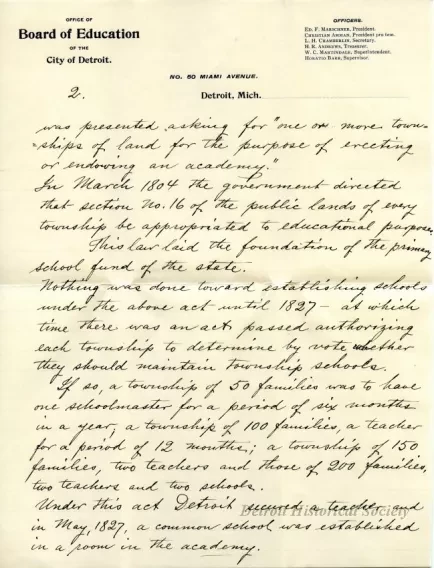 OFFICE OF
Board of Education
OF THE
City of Detroit.
OFFICERS.
ED. F. MARSCHNER, President.
L. H. CHAMBERLIN, Secretary.
H. R. ANDREWS, Treasurer.
W. C. MARTINDALE, Superintendent.
NO. 50 MIAMI AVENUE.
2.
Detroit, Mich.
was presented asking for "one or more town-
ships of land for the purpose of erecting
or endowing an academy."
In March 1804 the government directed
that section No. 16 of the public lands of every
township be appropriated to educational purposes
This law laid the foundation of the primary
school fund of the state.
Nothing was done toward establishing schools
under the above act until 1827 - at which
time there was an act passed authorizing
each township to determine by vote whether
they should maintain township schools.
If so, a township of 50 families was to have
one schoolmaster for a period of six months
in a year, a township of 100 families, a teacher
for a period of 12 months; a township of 150
families, two teachers and those of 200 families,
two teachers and two schools.
Under this act Detroit secured a teacher and
Detroit Historical Society
in May, 1827, a common school was established
in a room in the academy.